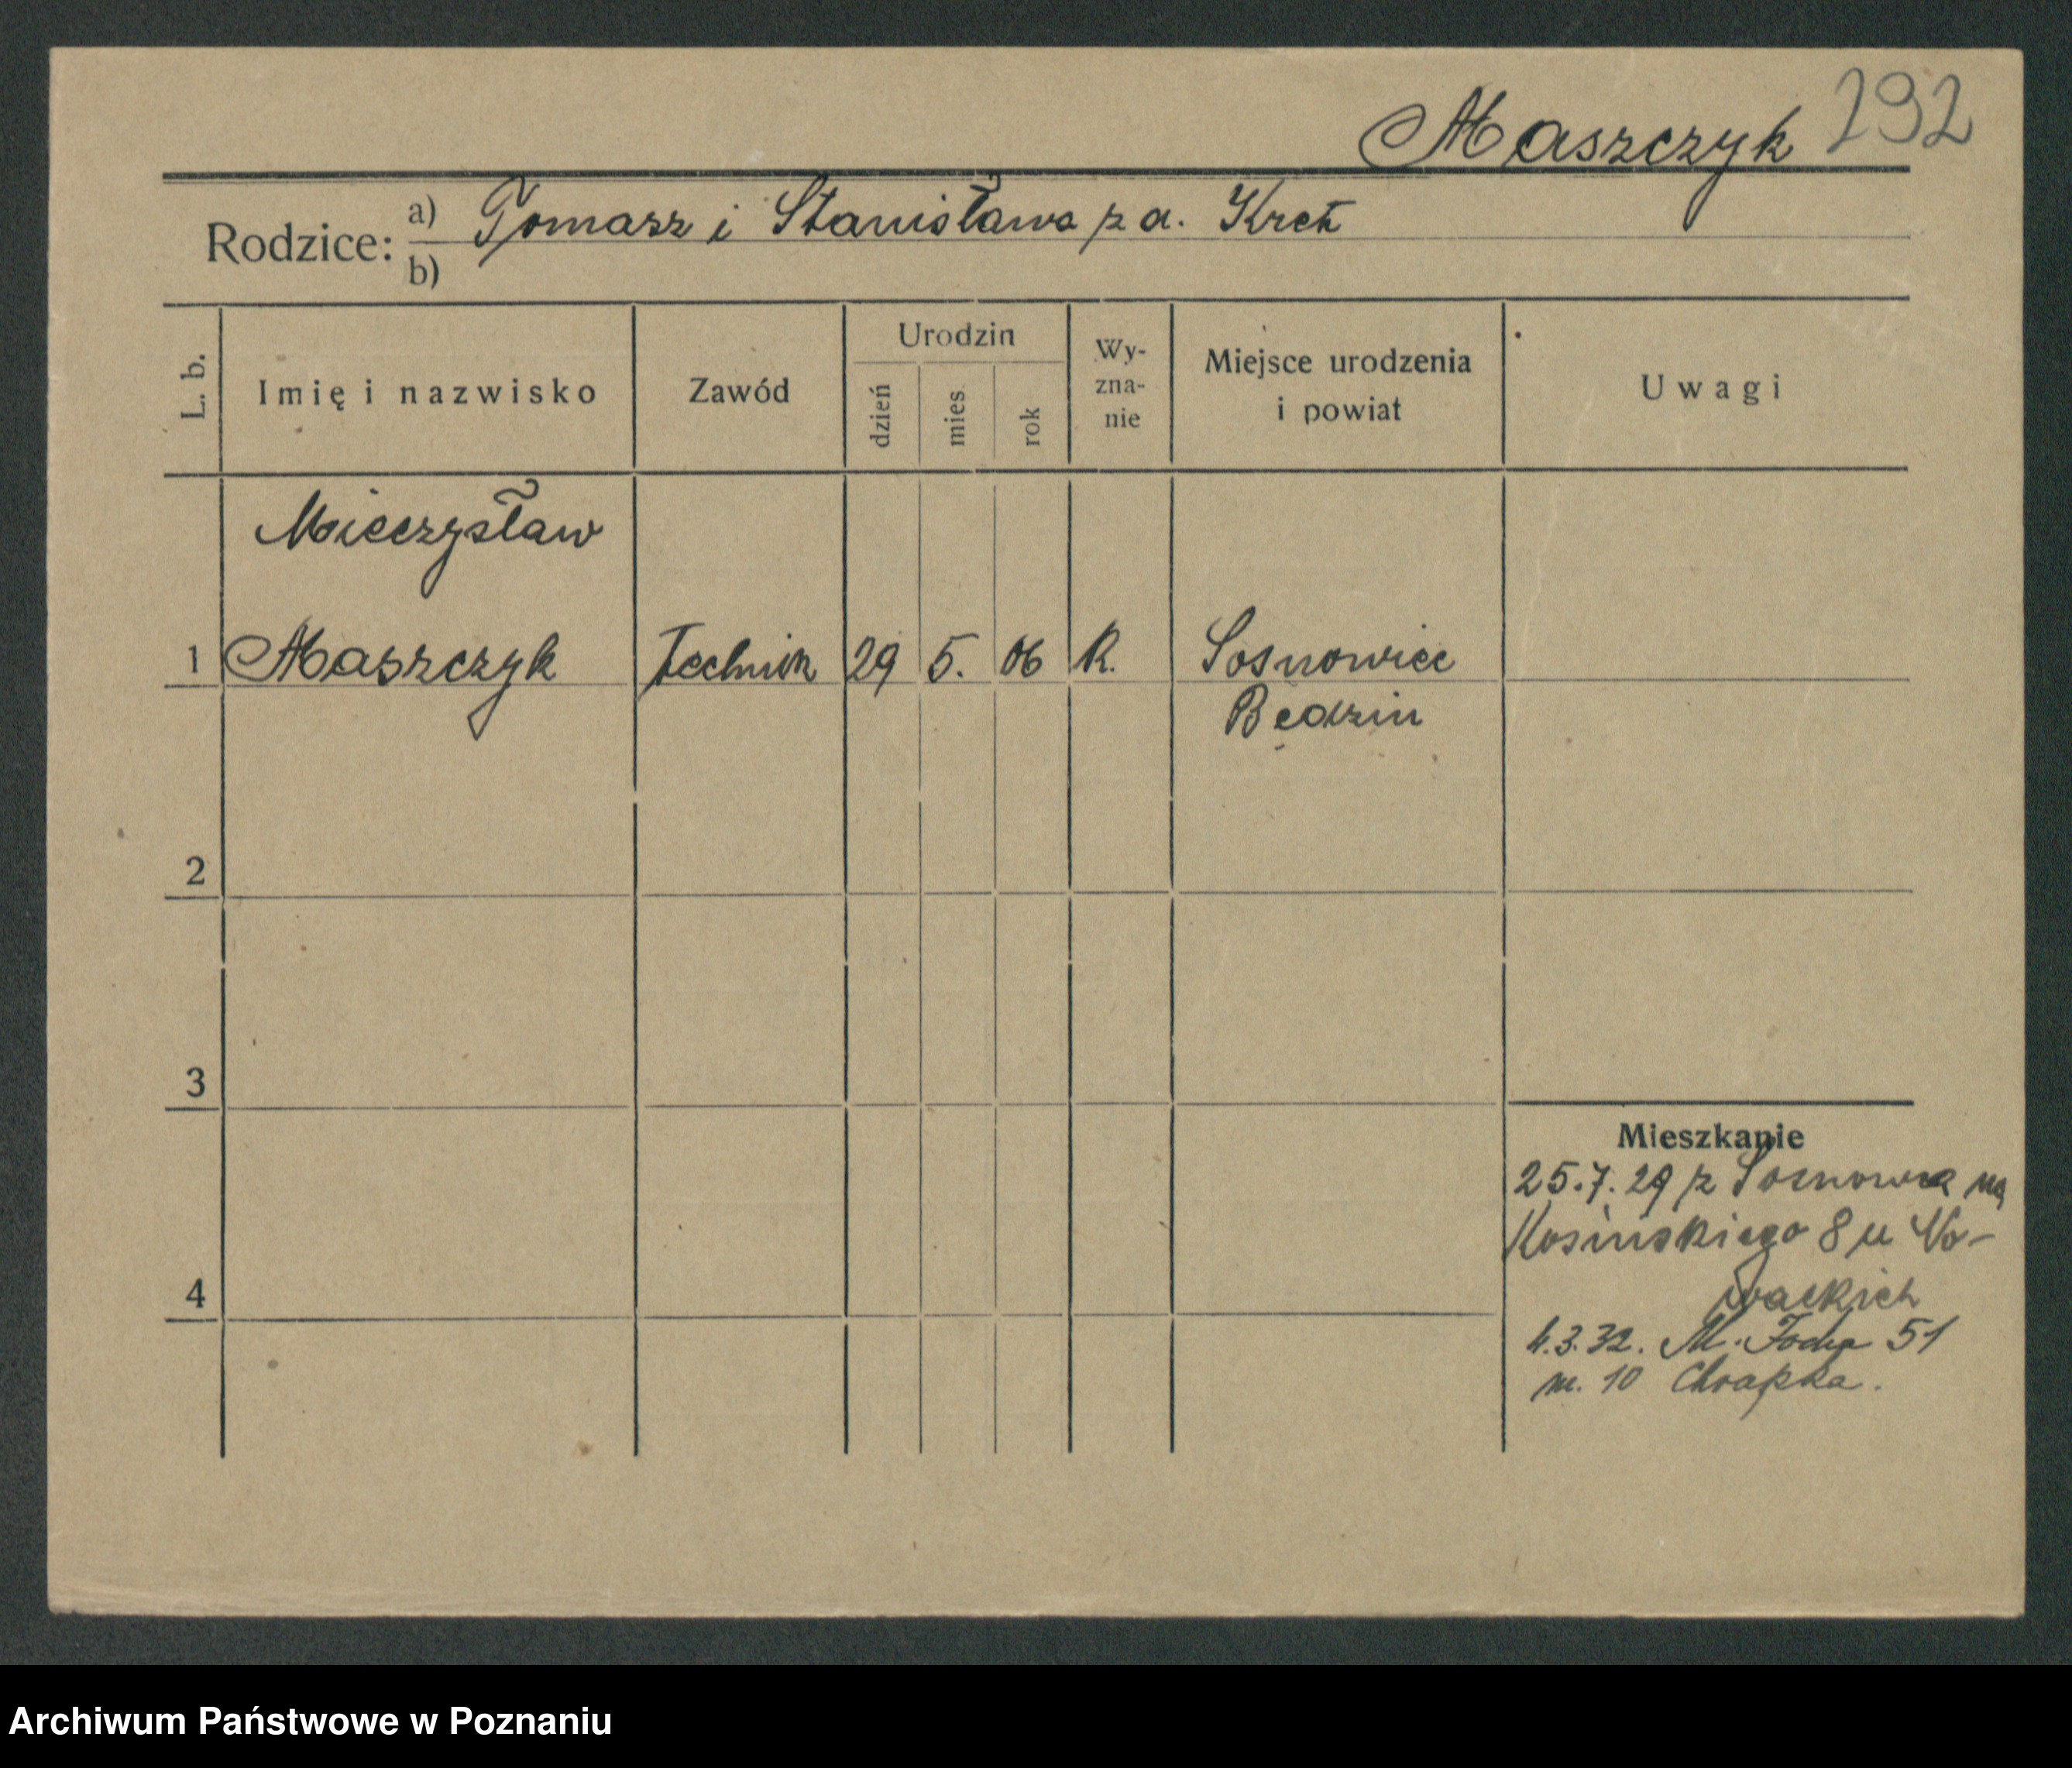 Maszczyk 292
Rodzice: a) Tomasz i Stanisława z d. Kret
b)
L. b.
Imię i nazwisko
Zawód
Urodzin
dzień
mies.
rok
Wy-
zna-
nie
Miejsce urodzenia
i powiat
Uwagi
Mieczysław
1 Maszczyk Technik 29 5. 06 R. Sosnowiec
Będzin
2
3
Mieszkanie
25.7.29 z Sosnowca na
Kosińskiego 8 u No-
wackich
4
4.3.32. M. Focha 51
m. 10 Chrapka.
Archiwum Państwowe w Poznaniu